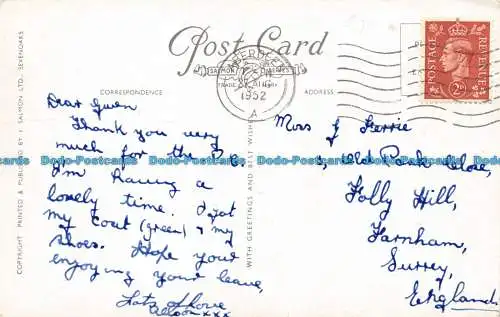 Post Card
SALMON SERIES
TRADE MARK
CORRESPONDENCE
ADDRESS
COPYRIGHT PRINTED & PUBLISHED BY J. SALMON LTD. SEVENOAKS
WITH GREETINGS AND BEST WISHES
ABERDEEN
1952
A
POSTAGE
REVENUE
2D
Dear Gwen
Thank you very
much for the P.C.
I'm having a
lovely time. I got
my coat (green) & my
shoes. Hope your
enjoying your leave,
Lots of love
Alison xxx
Miss J
Old Park Close,
Folly Hill,
Farnham,
Surrey,
England
Dodo-Postcards Dodo-Postcards Dodo-Postcards Dodo-Postcards